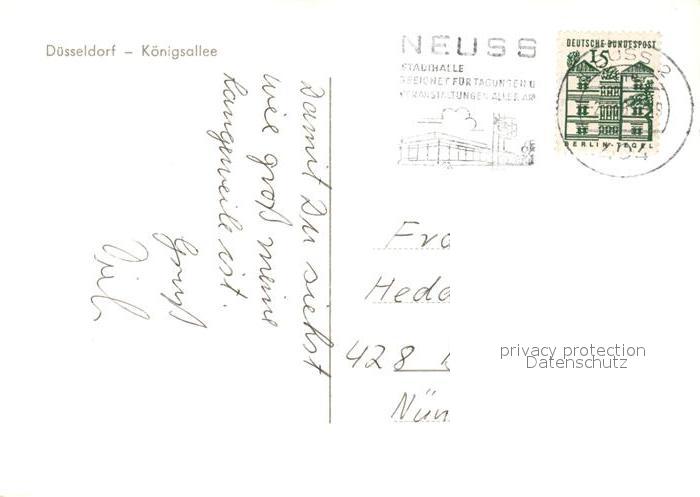 Düsseldorf – Königsallee
NEUSS
STADTHALLE
GEEIGNET FÜR TAGUNGEN U
VERANSTALTUNGEN ALLER ART
DEUTSCHE BUNDESPOST
15
BERLIN-TEGEL
NEUSS 2
404
Damit Du siehst
wie groß meine
Langeweile ist.
Gruß
Fra
Hedd
428
Nün
privacy protection
Datenschutz